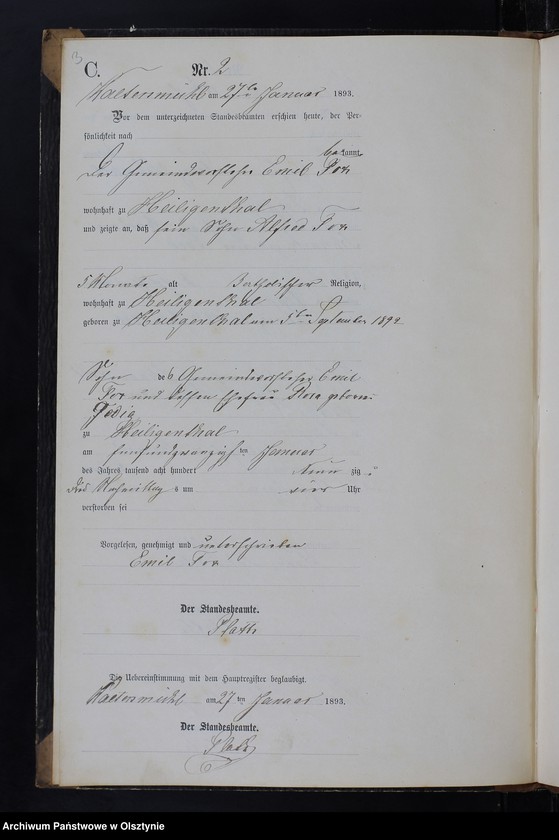 C. Nr. 2
am 27ten Januar 1893.
Vor dem unterzeichneten Standesbeamten erschien heute, der Per-
sönlichkeit nach
bekannt
Der Emil Fox
wohnhaft zu Heiligenthal
und zeigte an, daß sein Sohn Alfred Fox
5 Monate alt Katholischer Religion,
wohnhaft zu Heiligenthal
geboren zu Heiligenthal am 5ten September 1892
Sohn des Emil
Fox und dessen Ehefrau Rosa geborne
zu Heiligenthal
am fünfundzwanzigsten Januar
des Jahres tausend acht hundert neunzig u
drei Nachmittags um vier Uhr
verstorben sei
Vorgelesen, genehmigt und unterschrieben
Emil Fox
Der Standesbeamte.
Die Uebereinstimmung mit dem Hauptregister beglaubigt.
am 27ten Januar 1893.
Der Standesbeamte.
Archiwum Państwowe w Olsztynie